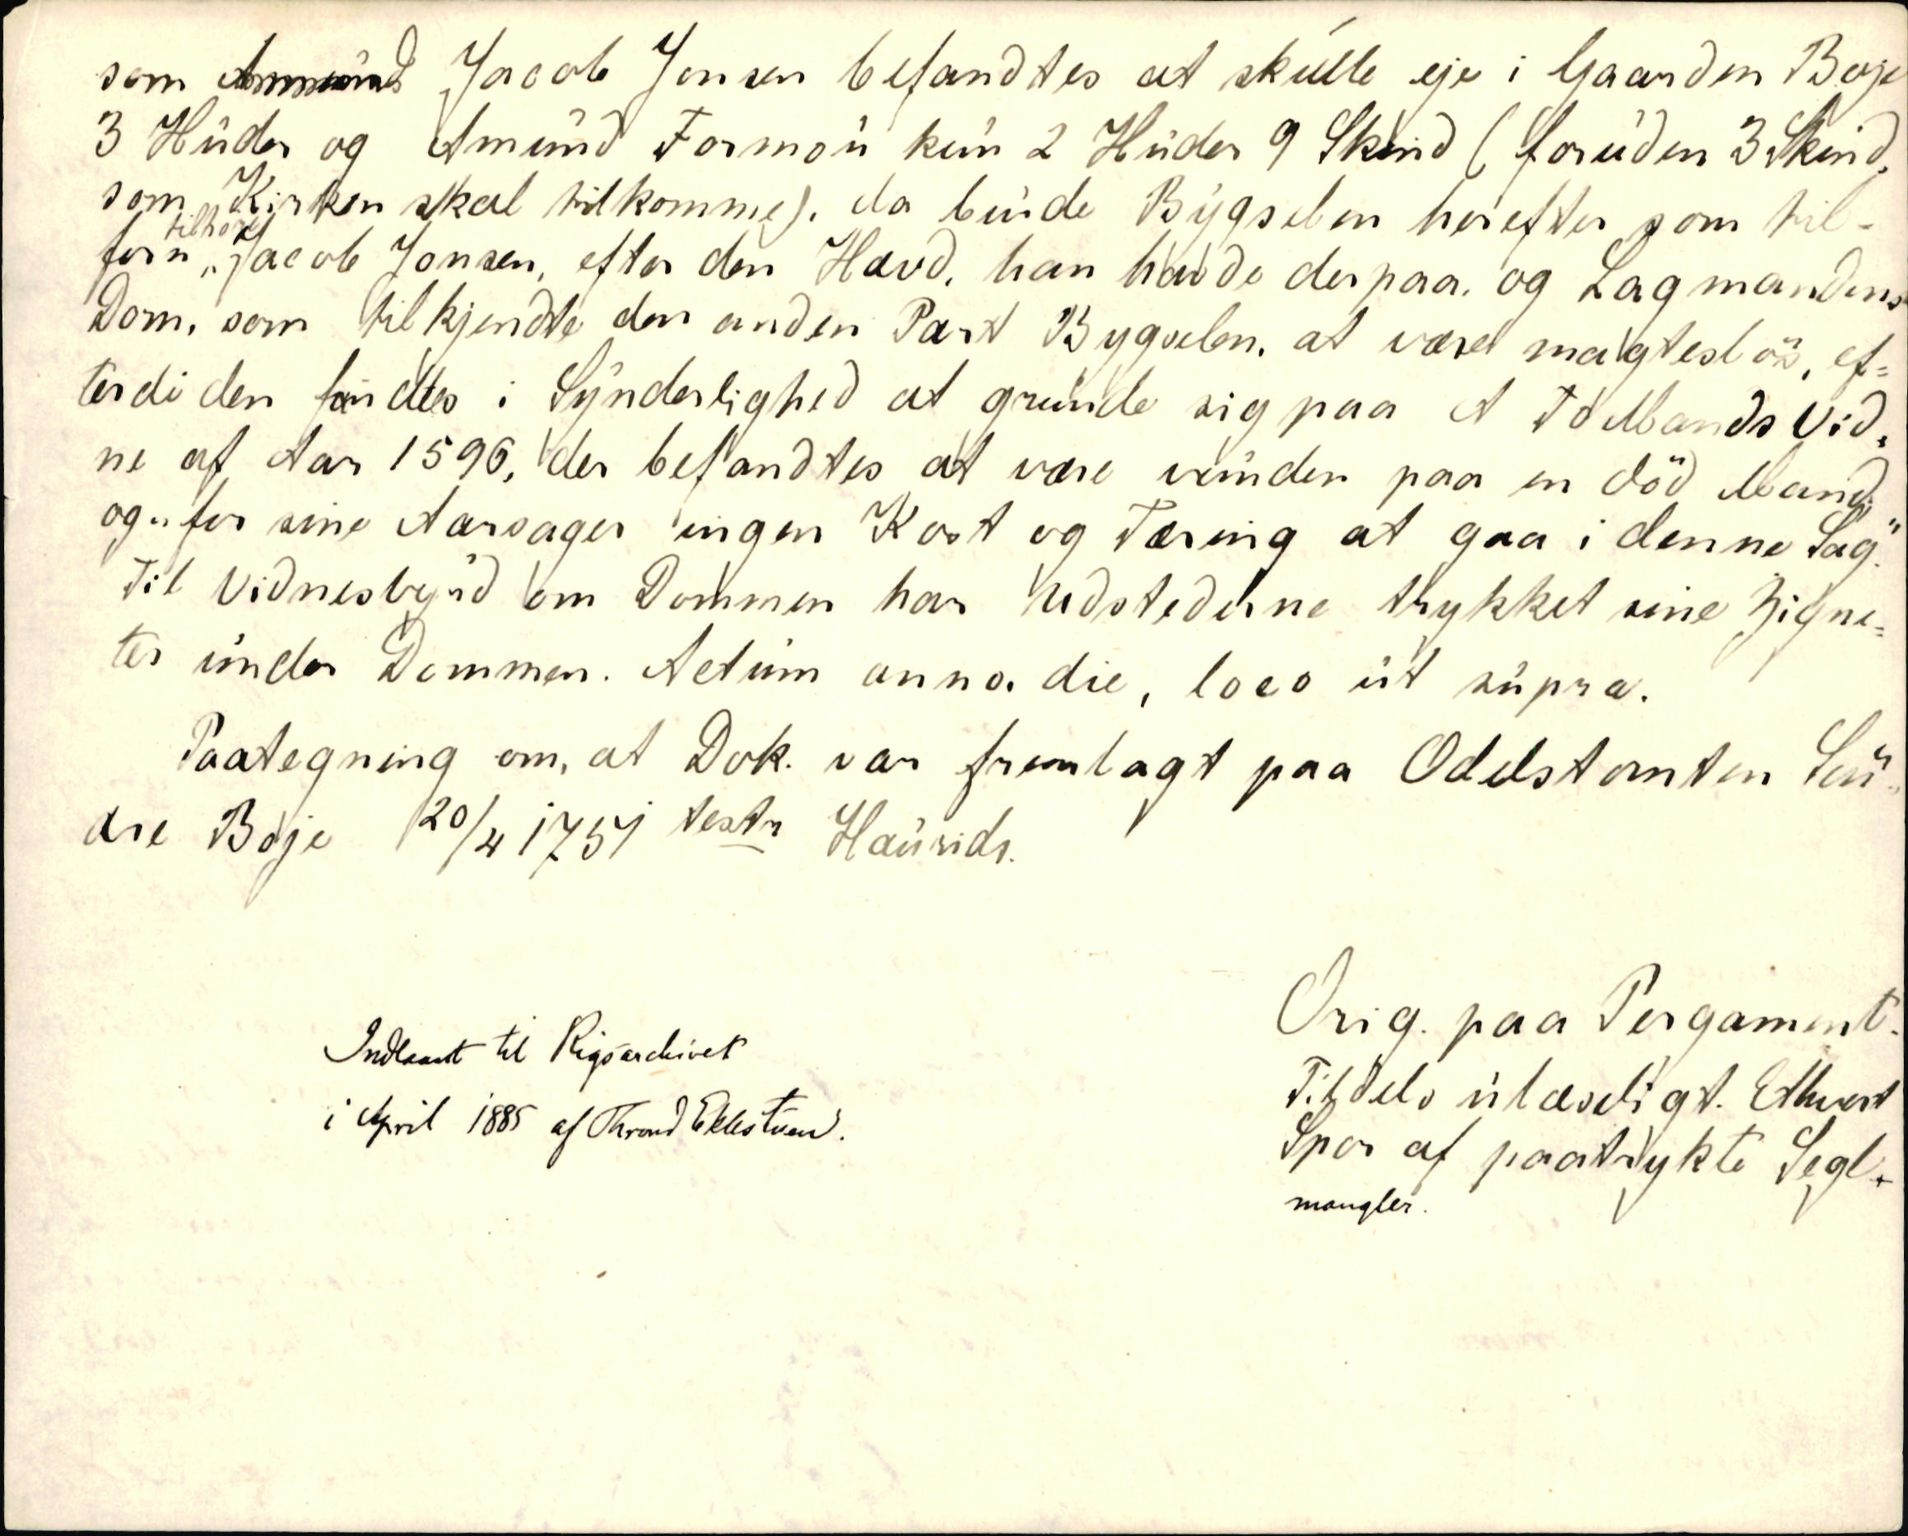 som Amund Jacob Jonsen befandtes at skulle eje i Gaarden Boje
3 Huder og Amund Formou kun 2 Huder 9 Skind (foruden 3 Skind,
som Kirken skal tilkomme), da burde Bygselen herefter som til-
forn „tilhøre Jacob Jonsen, efter den Hævd, han havde derpaa, og Lagmandens
Dom, som tilkjendte den anden Part Bygselen, at være magteslös, ef=
terdi den fandtes i Synderlighed at grunde sig paa et Tolvmands Vid=
ne af Aar 1596, der befandtes at være vunden paa en död Mand,
og „for sine Aarsager ingen Kost og Tæring at gaa i denne Sag."
Til Vidnesbyrd om Dommen har Udstederne trykket sine Zigne=
ter under Dommen. Actum anno, die, loco ut supra.
Paategning om, at Dok. var fremlagt paa Odelstomten Sün=
dre Boje 20/4 1751 testr
Orig. paa Pergament.
Tildels ulæseligt. Ethvert
Spor af paatrykte Segl
mangler.
Indlaant til Rigsarchivet
i April 1885 af Thrond Eklestuen.